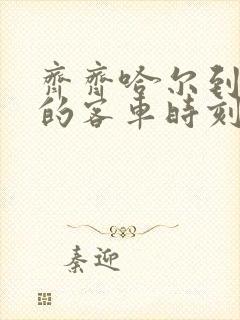 齊齊哈尔到
的客車時刻
秦迎